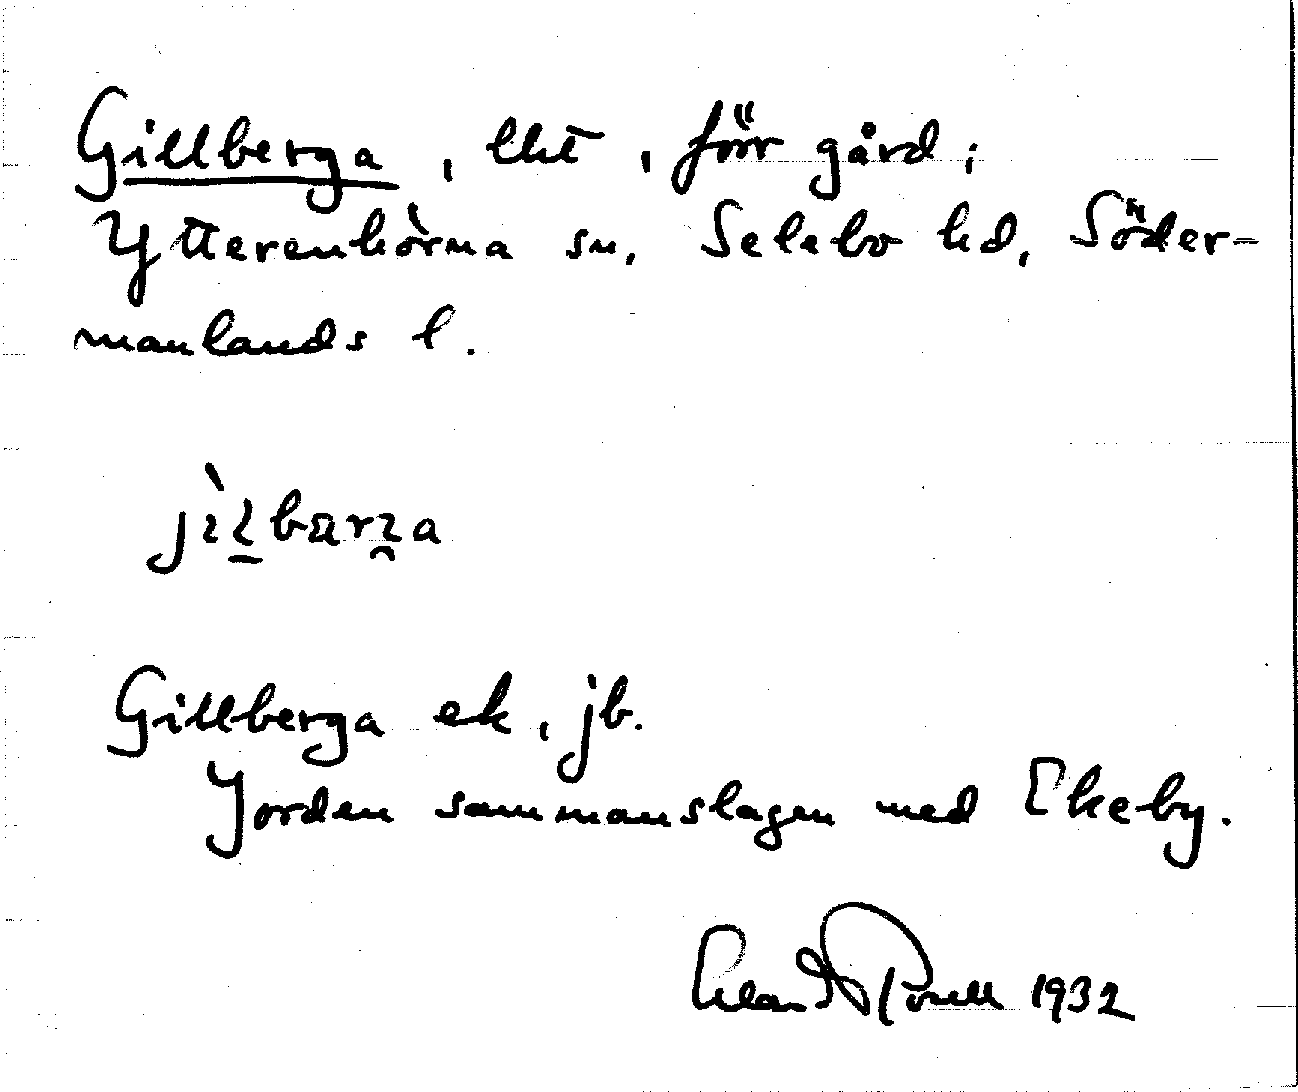 Gillberga, lht, förr gård;
Ytterenhörna sn, Selebo hd, Söder-
manlands l.
Gillberga ek, jb.
Jorden sammanslagen med Ekeby.
1932